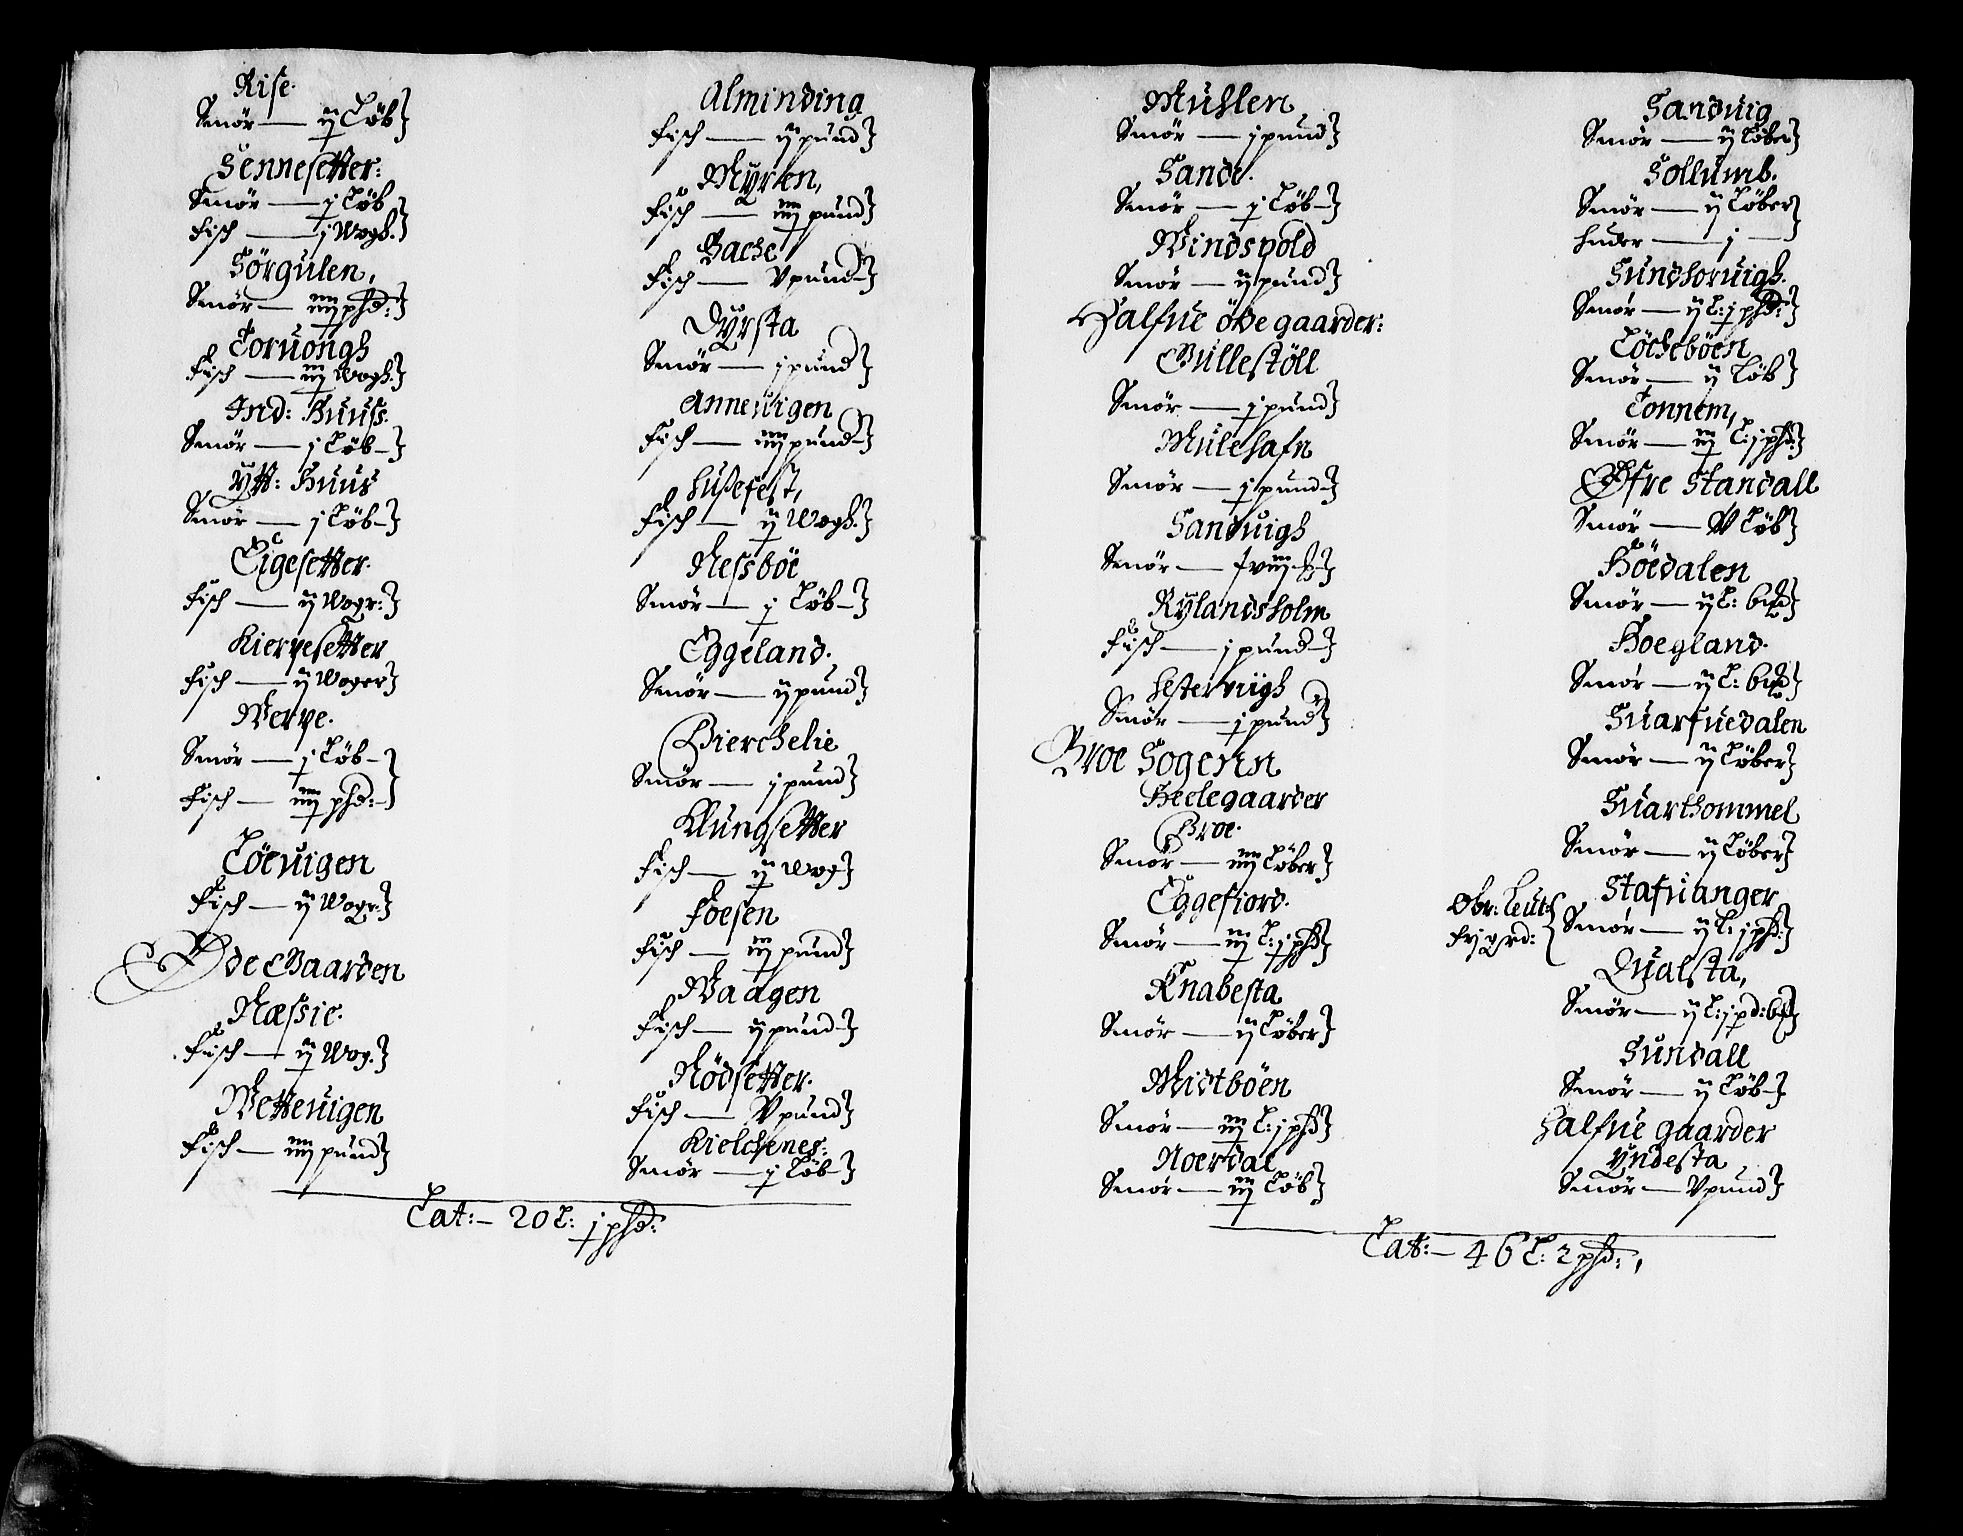 Rise.
Smör — ij Löb
Sennesetter:
Smör — j Löb
Fisch — j Wogh.
Sörgulen,
Smör — iiij phd:
Toruongh
Fisch — iij Wogh.
Ind: Huuss.
Smör — j Löb
Ytt: Huus
Smör — j Löb
Eigesetter.
Fisch — ij Wogr:
Kiervesetter
Fisch — ij Woger
Werve.
Smör — j Löb
Fisch — iiij phd:
Löeuigen
Fisch — ij Wogr:
Øde Gaarden
Næssie.
Fisch — ij Wog.
Wetteuigen
Fisch — iiij pund
Alminding
Fisch — ij pund
Myren,
Fisch — iiij pund
Bache
Fisch — V pund
Dyrsta
Smör — j pund
Anneuigen
Fisch — iiij pund
Husefest,
Fisch — ij Wogh.
Nessböe
Smör — j Löb
Eggeland.
Smör — ij pund
Bierchelie
Smör — j pund
Klungsetter
Fisch — ij Wog
Foesen
Fisch — iij pund
Waagen
Fisch — ij pund
Rödsetter.
Fisch — V pund
Kielchenes:
Smör — j Löb
Lat: — 20 L: j phd:
Muhlen
Smör — j pund
Sande.
Smör — j Löb
Windspold
Smör — ij pund
Halfue öde gaarder:
Gullestöll
Smör — j pund
Mulehafn
Smör — j pund
Sanduigh
Smör —
Rylandsholm
Fisch — j pund
Hesteruigh
Smör — j pund
Broe Sogenn
Heelegaarder
Broe.
Smör — iiij Löber
Eggefiord.
Smör — iij L: j phd
Knabesta
Smör — ij Löber
Midtböen
Smör — iij L: j phd
Noerdal
Smör — iij Löb
Sanduig
Smör — ij Löber
Sollumb.
Smör — ij Löber
huder — j —
Sundhoruigh.
Smör — ij L: j phd:
Löcheböen
Smör — ij Löb
Tonnem,
Smör — iij L: j phd:
Øfre Standall
Smör — V Löb
Höedalen
Smör — ij L:
Hoegland.
Smör — ij L:
Suarfuedalen
Smör — ij Löber
Suarthommel
Smör — ij Löber
Obr: Leut:
frj grd:
Stafuanger
Smör — ij L: j phd:
Qualsta,
Smör — ij L: j pd:
Sundall
Smör — ij Löb
Halfue gaarder
Yndesta
Smör — V pund
Lat: — 46 L: 2 phd:,